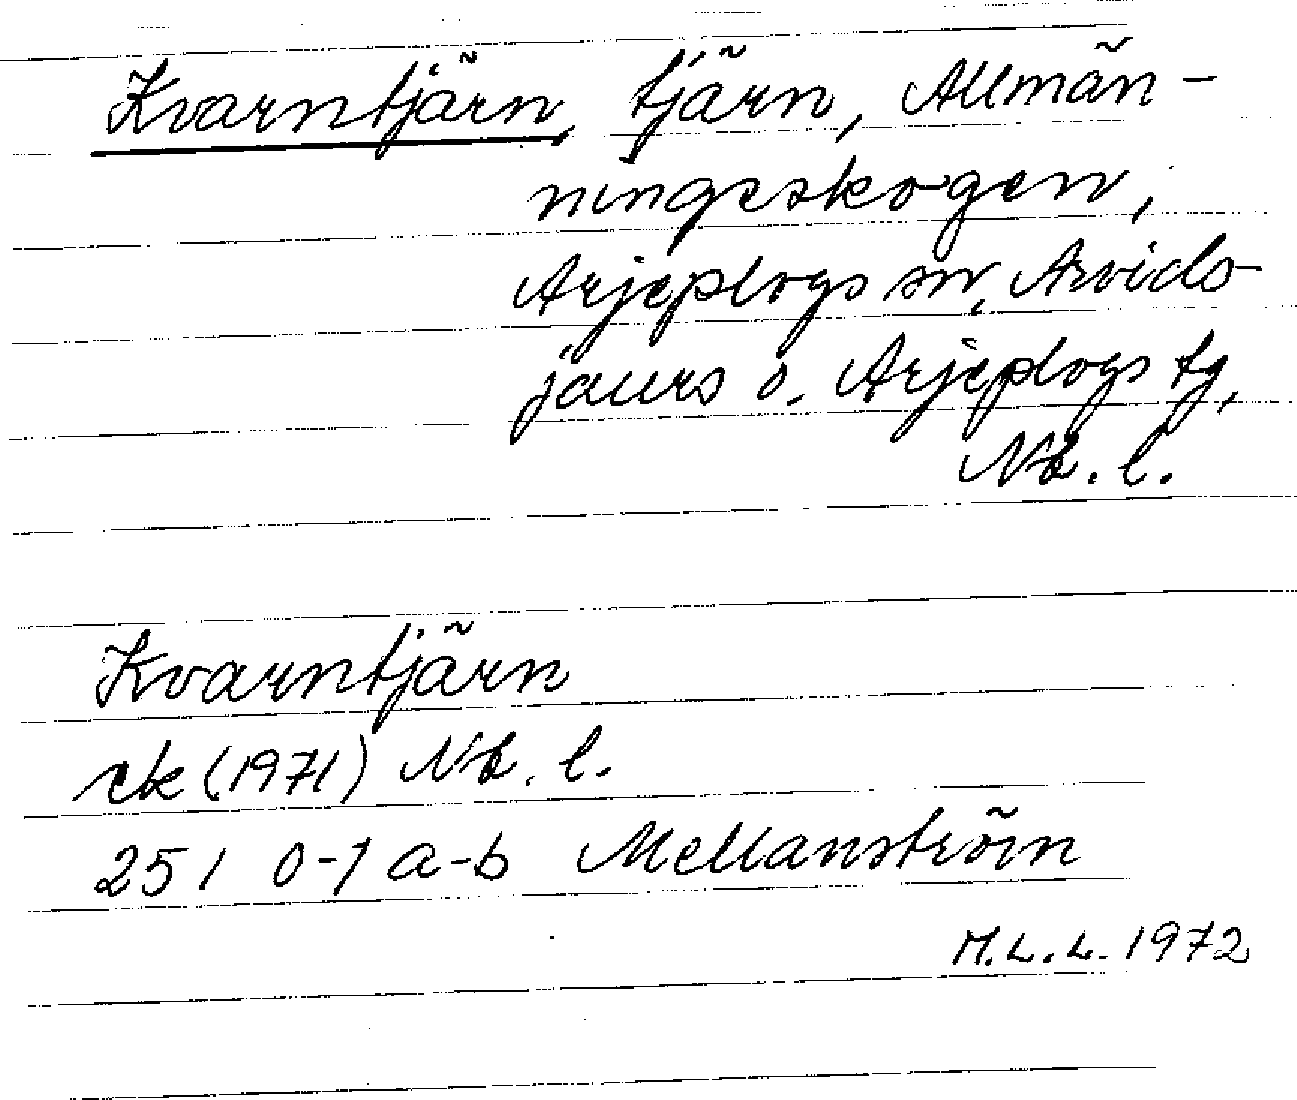 Kvarntjärn, tjärn, Allmän-
ningsskogen,
Arjeplogs sn, Arvids-
jaurs o. Arjeplogs tg,
Nb. l.
Kvarntjärn
ek (1971) Nb. l.
25 I 0-1 a-b Mellanström
M.L.L. 1972